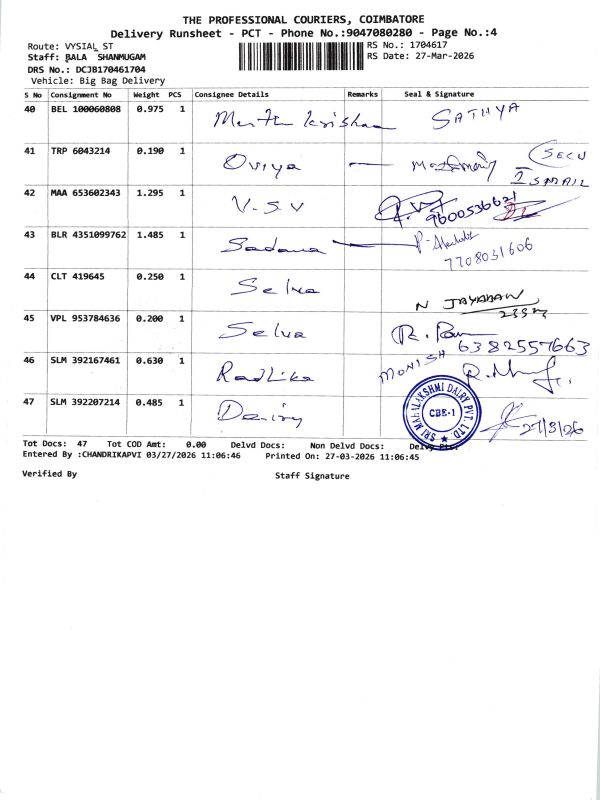 THE PROFESSIONAL COURIERS, COIMBATORE
Delivery Runsheet - PCT - Phone No.:9047080280 - Page No.:4
Route: VYSIAL ST
RS No.: 1704617
Staff: BALA SHANMUGAM
RS Date: 27-Mar-2026
DRS No.: DCJB170461704
Vehicle: Big Bag Delivery
S No Consignment No Weight PCS Consignee Details Remarks Seal & Signature
40 BEL 100060808 0.975 1 SATHYA
41 TRP 6043214 0.190 1 Oviya
ISMAIL
42 MAA 653602343 1.295 1 V.S.V
43 BLR 4351099762 1.485 1 Sadana
7708031606
44 CLT 419645 0.250 1 Selva
N JAYARAM
45 VPL 953784636 0.200 1 Selva
6382557663
46 SLM 392167461 0.630 1 Radhika MONISH
47 SLM 392207214 0.485 1
SRI MAHALAKSHMI DAIRY PVT. LTD
CBE-1
27/3/26
Tot Docs: 47 Tot COD Amt: 0.00 Delvd Docs: Non Delvd Docs:
Entered By :CHANDRIKAPVI 03/27/2026 11:06:46 Printed On: 27-03-2026 11:06:45
Verified By Staff Signature